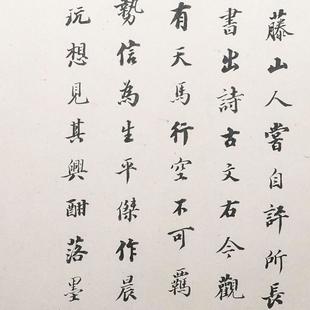 藤山人嘗自評所長
書出詩古文右今觀
有天馬行空不可羈
勢信為生平傑作晨
玩想見其興酣落墨